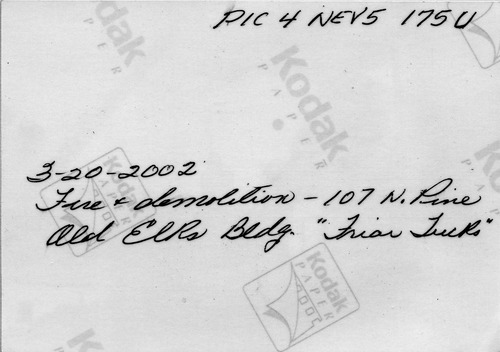 PIC 4 NEV5 175U
3-20-2002
Fire & demolition - 107 N. Pine
Old Elks Bldg. "Friar Tucks"
Kodak
PAPER
Kodak
PAPER
Kodak
PAPER
Kodak
PAPER